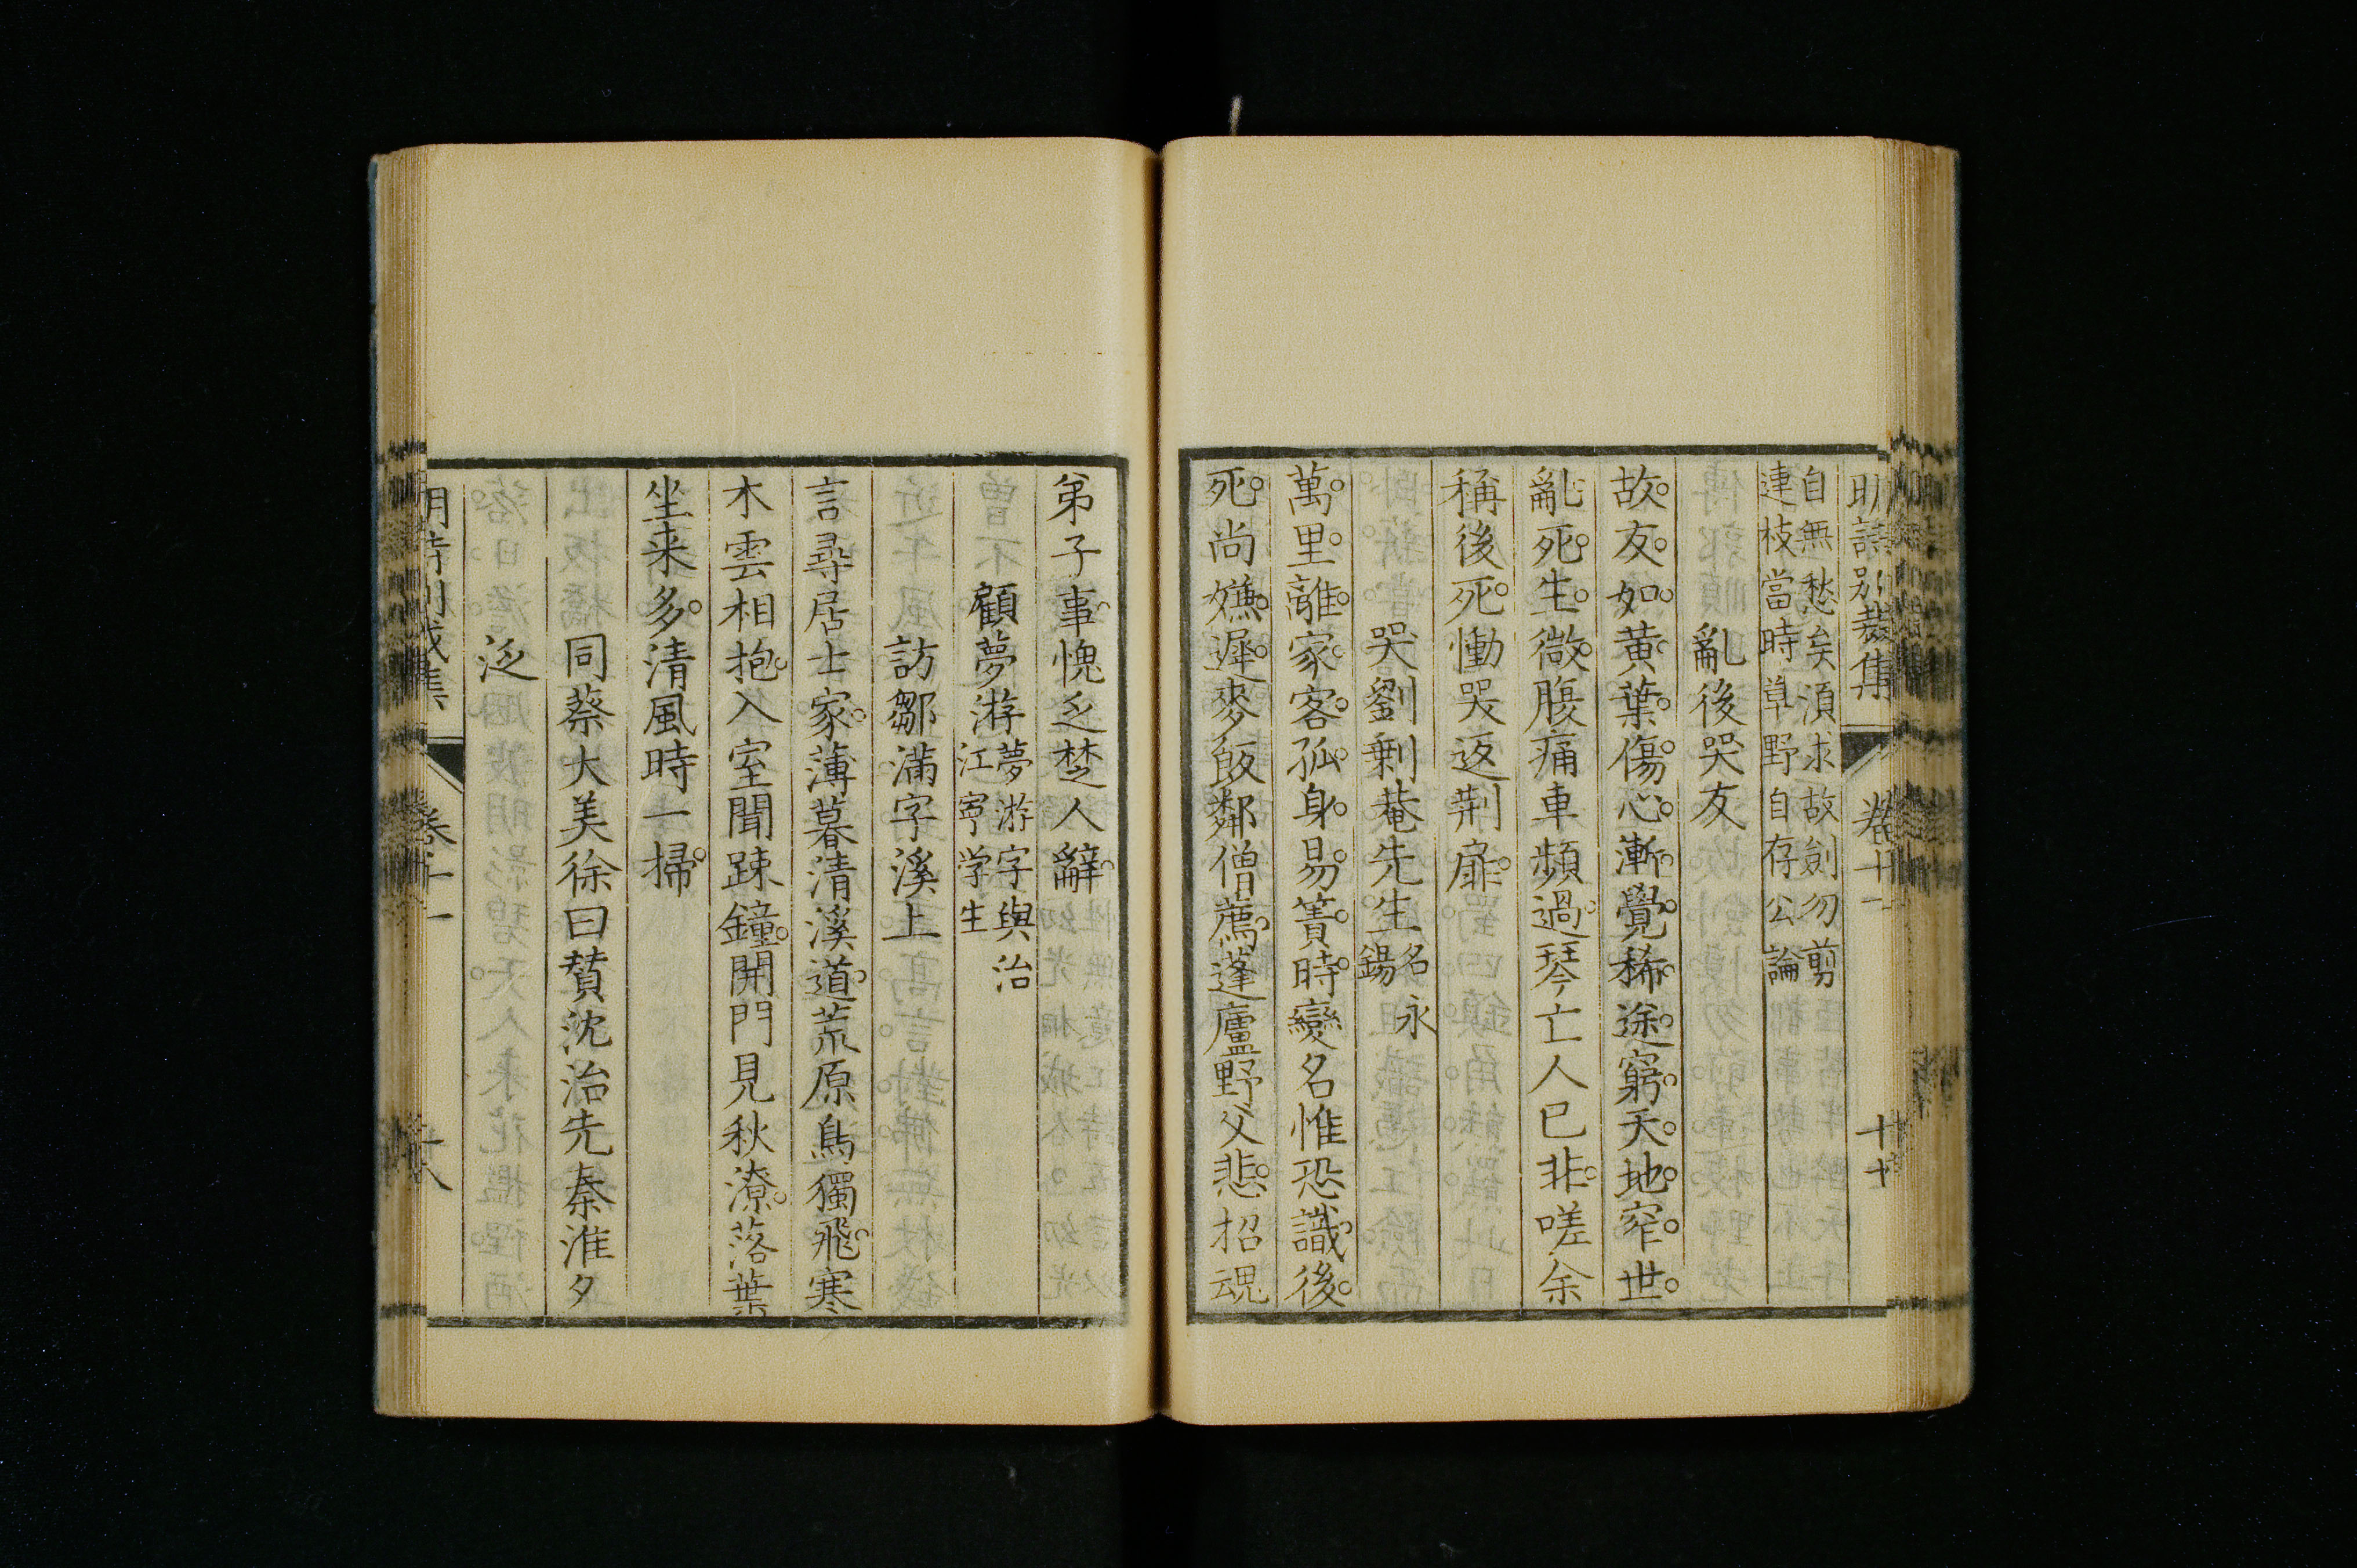 明詩別裁集 卷十一 十七
自無愁矣須求故劍勿剪
連枝當時草野自存公論
亂後哭友
故友如黄葉傷心漸覺稀途窮天地窄世
亂死生微腹痛車頻過琴亡人已非嗟余
稱後死慟哭返荆扉
哭劉剩菴先生名永錫
萬里離家客孤身易簀時變名惟恐識後
死尚嫌遲麥飯鄰僧薦蓬廬野父悲招魂
弟子事愧乏楚人辭
顧夢游夢游字與治江寧学生
訪鄒滿字溪上
言尋居士家薄暮清溪道荒原鳥獨飛寒
木雲相抱入室聞踈鐘開門見秋潦落葉
坐来多清風時一掃
同蔡大美徐曰賛沈治先秦淮夕
泛
明詩別裁集 卷十一 十八